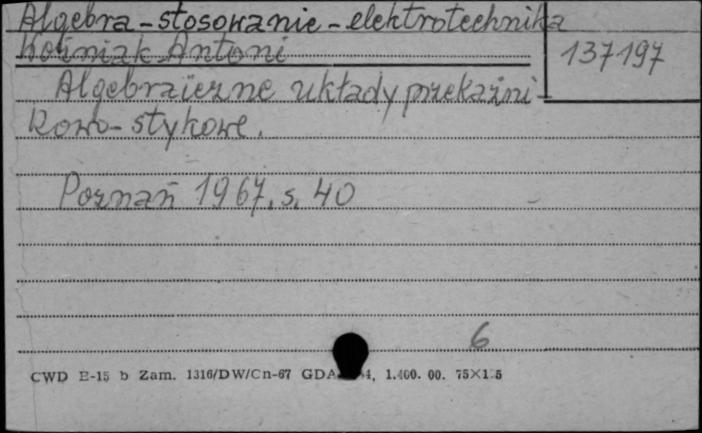 Algebra - stosowanie - elektrotechnika
Woźniak Antoni
137197
Algebraiczne układy przekaźni
kowo-stykowe.
Poznań 1967. s. 40
6
CWD E-15 b Zam. 1316/DW/Cn-67 GDA 4, 1.400. 00. 75X1 5